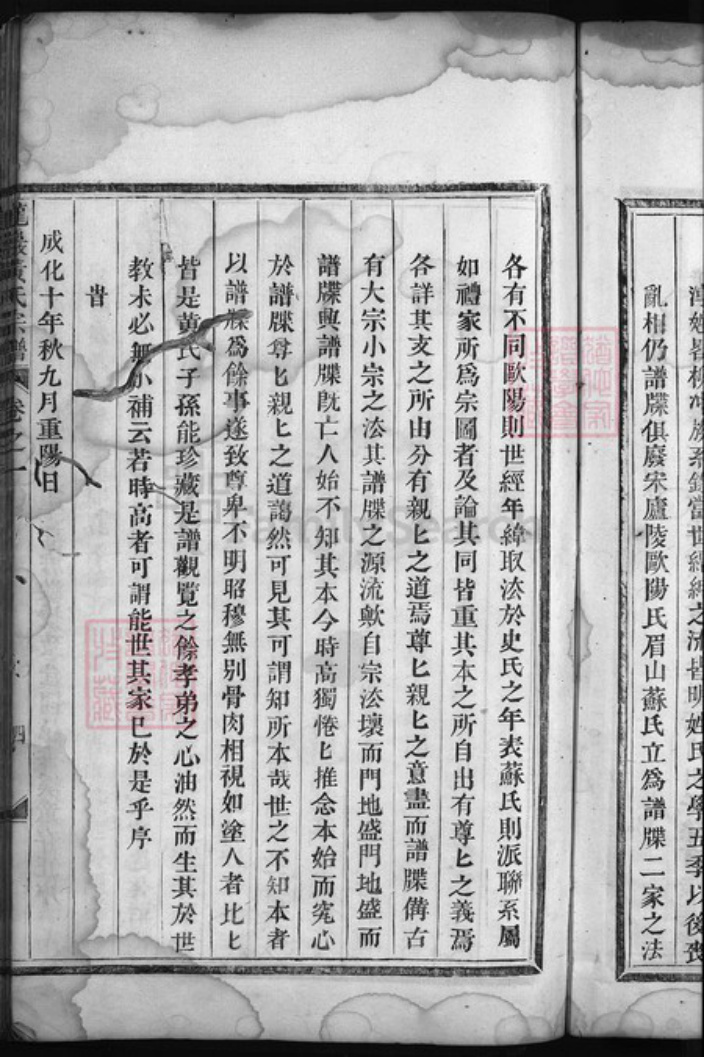 姓
之
皆明姓氏之學五季以後喪
亂相仍譜牒俱廢宋廬陵歐陽氏眉山蘇氏立為譜牒二家之法
各有不同歐陽則世經年緯取法於史氏之年表蘇氏則派聯系屬
如禮家所為宗圖者及論其同皆重其本之所自出有尊匕之義焉
各詳其支之所由分有親匕之道焉尊匕親匕之意盡而譜牒俻古
有大宗小宗之法其譜牒之源流歟自宗法壞而門地盛門地盛而
譜牒興譜牒旣亡人始不知其本今時高獨惓匕推念本始而究心
於譜牒尊匕親匕之道藹然可見其可謂知所本哉世之不知本者
以譜牒為餘事遂致尊卑不明昭穆無别骨肉相視如塗人者比匕
皆是黄氏子孫能珍藏是譜觀覽之餘孝弟之心油然而生其於世
教未必無小補云若時高者可謂能世其家已於是乎序
旹
成化十年秋九月重陽日
黄氏宗譜 卷之一
四
FamilySearch